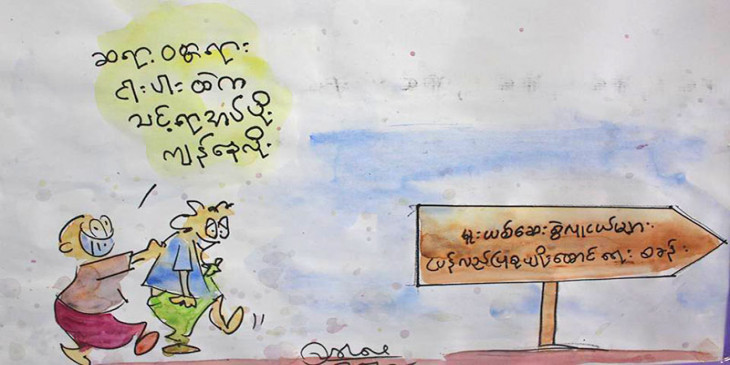 ဆရာ့ ဝတ္ထုရား
ငါးပါးထဲက
သင့်ရာအပ်ဖို့
ကျန်နေလို့
မူးယစ်ဆေးစွဲလူငယ်များ
ပြန်လည်ပြုစုပျိုးထောင်ရေး စခန်း